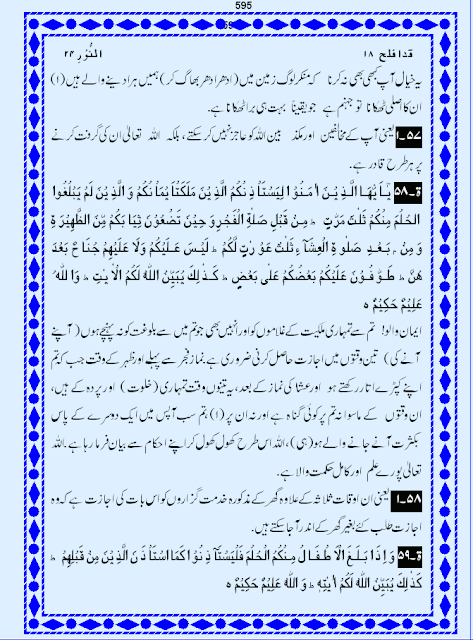 595
59
قد افلح ۱۸ النُّوْر ۲۴
یہ خیال آپ کبھی بھی نہ کرنا کہ منکر لوگ زمین میں (ادھر ادھر بھاگ کر) ہمیں ہرا دینے والے ہیں (۱)
ان کا اصلی ٹھکانا تو جہنم ہے جو یقیناً بہت ہی برا ٹھکانا ہے۔
۵۷۔۱ یعنی آپ کے مخالفین اور مکذبین اللہ کو عاجز نہیں کر سکتے، بلکہ اللہ تعالٰی ان کی گرفت کرنے
پر ہر طرح قادر ہے۔
ة۔۵۸ یٰۤاَ یُّهَا الَّذِیْنَ اٰمَنُوْا لِیَسْتَاْذِنْكُمُ الَّذِیْنَ مَلَكَتْ اَیْمَانُكُمْ وَ الَّذِیْنَ لَمْ یَبْلُغُوا
الْحُلُمَ مِنْكُمْ ثَلٰثَ مَرّٰتٍ ؕ مِنْ قَبْلِ صَلٰوةِ الْفَجْرِ وَ حِیْنَ تَضَعُوْنَ ثِیَابَكُمْ مِّنَ الظَّهِیْرَةِ
وَ مِنْۢ بَعْدِ صَلٰوةِ الْعِشَآءِ ثَلٰثُ عَوْرٰتٍ لَّكُمْ ؕ لَیْسَ عَلَیْكُمْ وَ لَا عَلَیْهِمْ جُنَاحٌۢ بَعْدَ
هُنَّ ؕ طَوّٰفُوْنَ عَلَیْكُمْ بَعْضُكُمْ عَلٰی بَعْضٍ ؕ كَذٰلِكَ یُبَیِّنُ اللّٰهُ لَكُمُ الْاٰیٰتِ ؕ وَ اللّٰهُ
عَلِیْمٌ حَكِیْمٌ ه
ایمان والو! تم سے تمہاری ملکیت کے غلاموں کو اور انہیں بھی جو تم میں سے بلوغت کو نہ پہنچے ہوں (اپنے
آنے کی) تین وقتوں میں اجازت حاصل کرنی ضروری ہے۔ نماز فجر سے پہلے اور ظہر کے وقت جب کہ تم
اپنے کپڑے اتار رکھتے ہو اور عشا کی نماز کے بعد، یہ تینوں وقت تمہاری (خلوت) اور پردہ کے ہیں،
ان وقتوں کے ماسوا نہ تم پر کوئی گناہ ہے اور نہ ان پر (۱) تم سب آپس میں ایک دوسرے کے پاس
بکثرت آنے جانے والے ہو (ہی)، اللہ اس طرح کھول کھول کر اپنے احکام سے بیان فرما رہا ہے۔ اللہ
تعالٰی پورے علم اور کامل حکمت والا ہے۔
۵۸۔۱ یعنی ان اوقات ثلاثہ کے علاوہ گھر کے مذکورہ خدمت گزاروں کو اس بات کی اجازت ہے کہ وہ
اجازت طلب کئے بغیر گھر کے اندر آ جا سکتے ہیں۔
ة۔۵۹ وَ اِذَا بَلَغَ الْاَطْفَالُ مِنْكُمُ الْحُلُمَ فَلْیَسْتَاْذِنُوْا كَمَا اسْتَاْذَنَ الَّذِیْنَ مِنْ قَبْلِهِمْ ؕ
كَذٰلِكَ یُبَیِّنُ اللّٰهُ لَكُمْ اٰیٰتِهٖ ؕ وَ اللّٰهُ عَلِیْمٌ حَكِیْمٌ ه